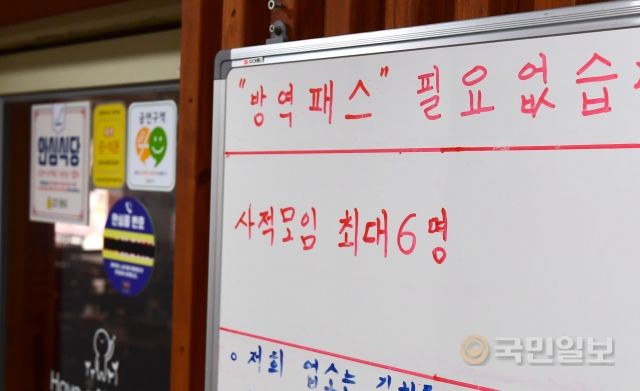 "방역패스" 필요없습
사적모임 최대 6명
○ 저희 업소는
안심식당
금연구역
안심콜 번호
국민일보